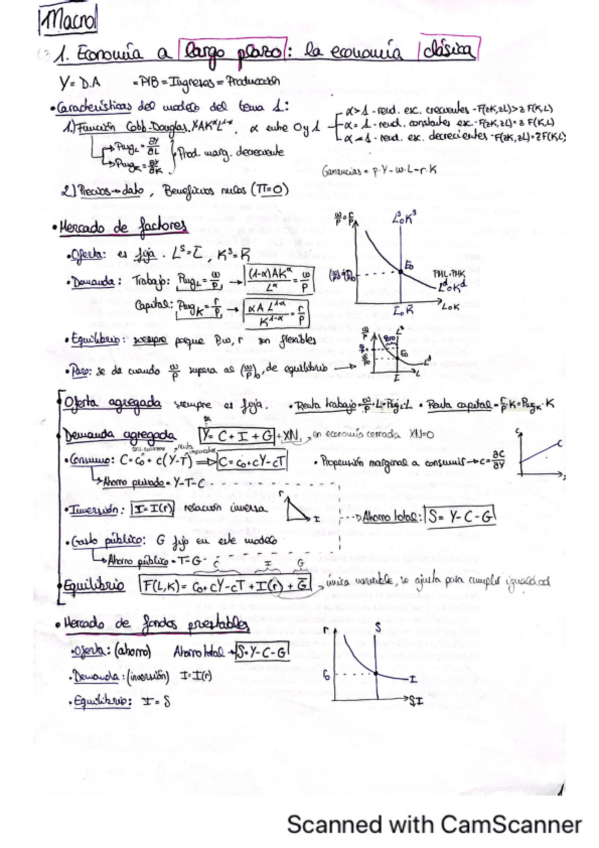 Macro
1. Economía a largo plazo: la economía clásica
Y = D.A = PIB = Ingresos = Producción
• Características del modelo del tema 1:
1) Función Cobb-Douglas, Y=AK^α L^1-α. α entre 0 y 1
α>1 - rend. esc. crecientes - F(zK,zL)>z F(K,L)
α=1 - rend. constantes esc. - F(zK,zL)=z F(K,L)
α<1 - rend. esc. decrecientes - F(zK,zL)<zF(K,L)
PmgL = ∂Y/∂L
PmgK = ∂Y/∂K
Prod. marg. decreciente
Ganancias = p·Y - w·L - r·K
2) Precios → dato, Beneficios nulos (Π=0)
• Mercado de factores
• Oferta: es fija. L^s = L̄, K^s = K̄
• Demanda: Trabajo: PmgL = w/p → (1-α)AK^α / L^α = w/p
Capital: PmgK = r/p → αA L^1-α / K^1-α = r/p
E0
PML·PMK
L^d o K^d
L o K
• Equilibrio: siempre porque P, w, r son flexibles
• Paro: se da cuando w/p supera al (w/p)0, de equilibrio
Oferta agregada siempre es fija. • Renta trabajo = w/p·L = PmgL·L • Renta capital = r/p·K = PmgK·K
Demanda agregada Y = C + I + G + XN, en economía cerrada XN=0
• Consumo: C = c0 + c(Y-T) ⟹ C = c0 + cY - cT • Propensión marginal a consumir → c = ∂C/∂Y
Ahorro privado = Y-T-C
• Inversión: I = I(r) relación inversa
Ahorro total: S = Y-C-G
• Gasto público: G fijo en este modelo
Ahorro público = T-G
C I G
Equilibrio F(L,K) = c0 + cY - cT + I(r) + G, única variable, se ajusta para cumplir igualdad
• Mercado de fondos prestables
• Oferta: (ahorro) Ahorro total → S = Y-C-G
• Demanda: (inversión) I = I(r)
• Equilibrio: I = S
r
S
I
S,I
1
Scanned with CamScanner